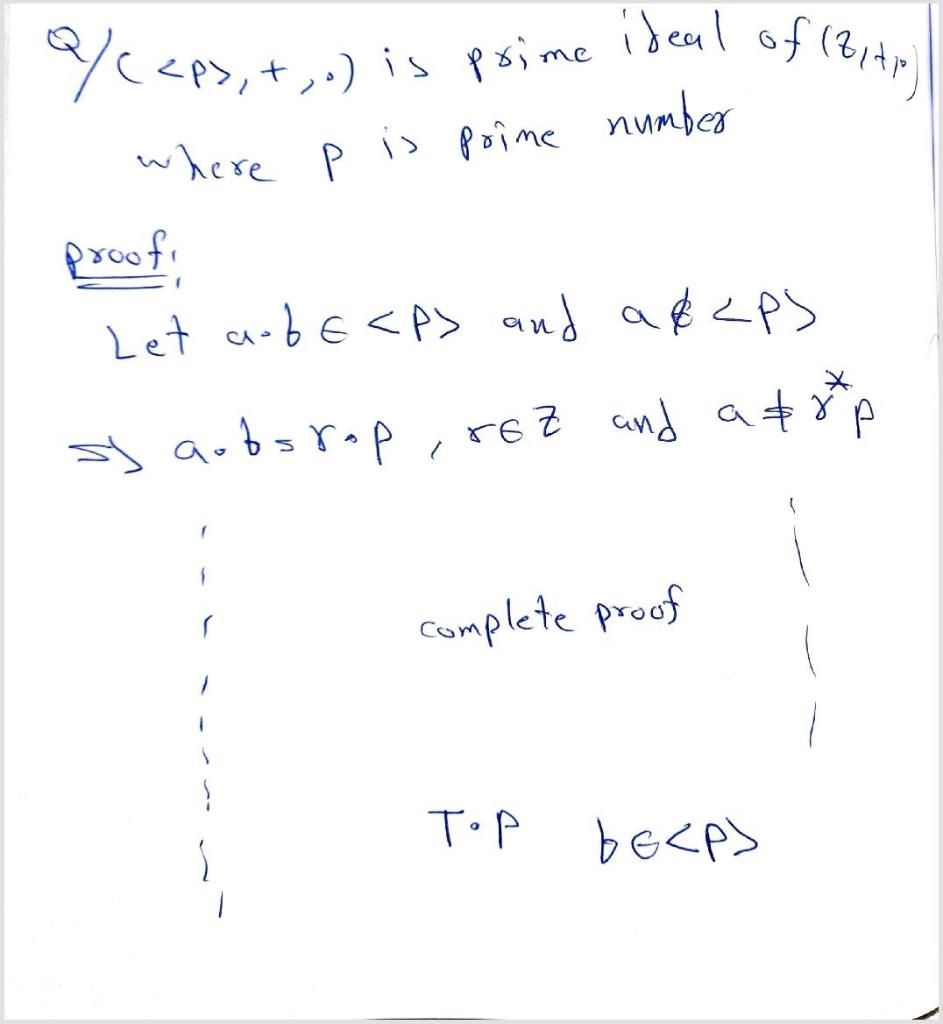 Q/(<p>,+,.) is prime ideal of (Z,+,.)
where p is prime number
proof:
Let a.b ∈ <p> and a ∉ <p>
⇒ a.b=r.p , r∈Z and a ≠ r*p
complete proof
T.P b∈<p>